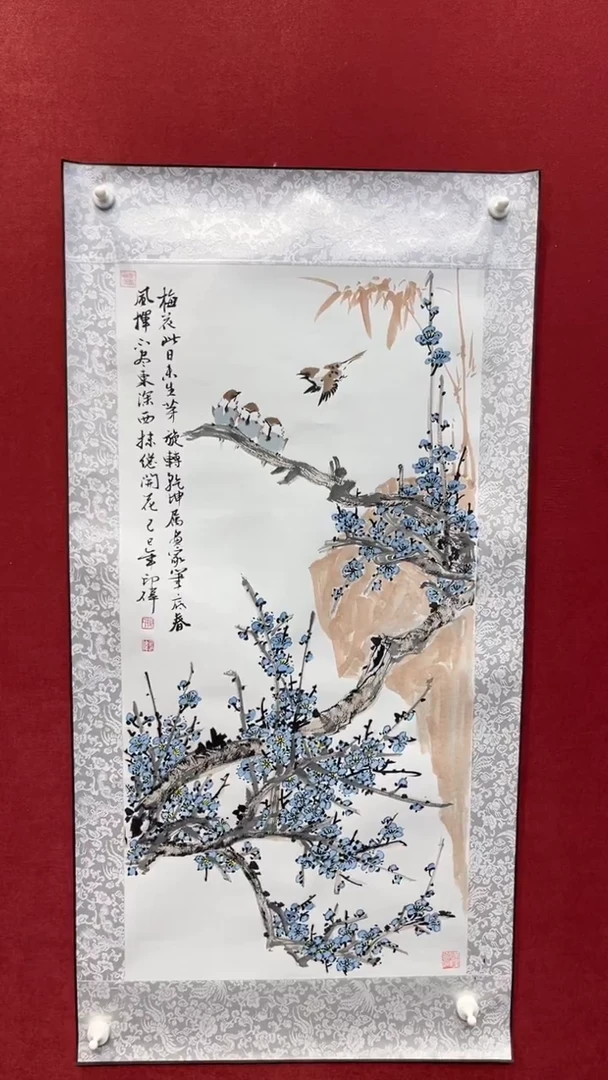 梅花此日未生芽旋轉乾坤屬畫家筆底春
風揮不盡東涂西抹總開花己巳